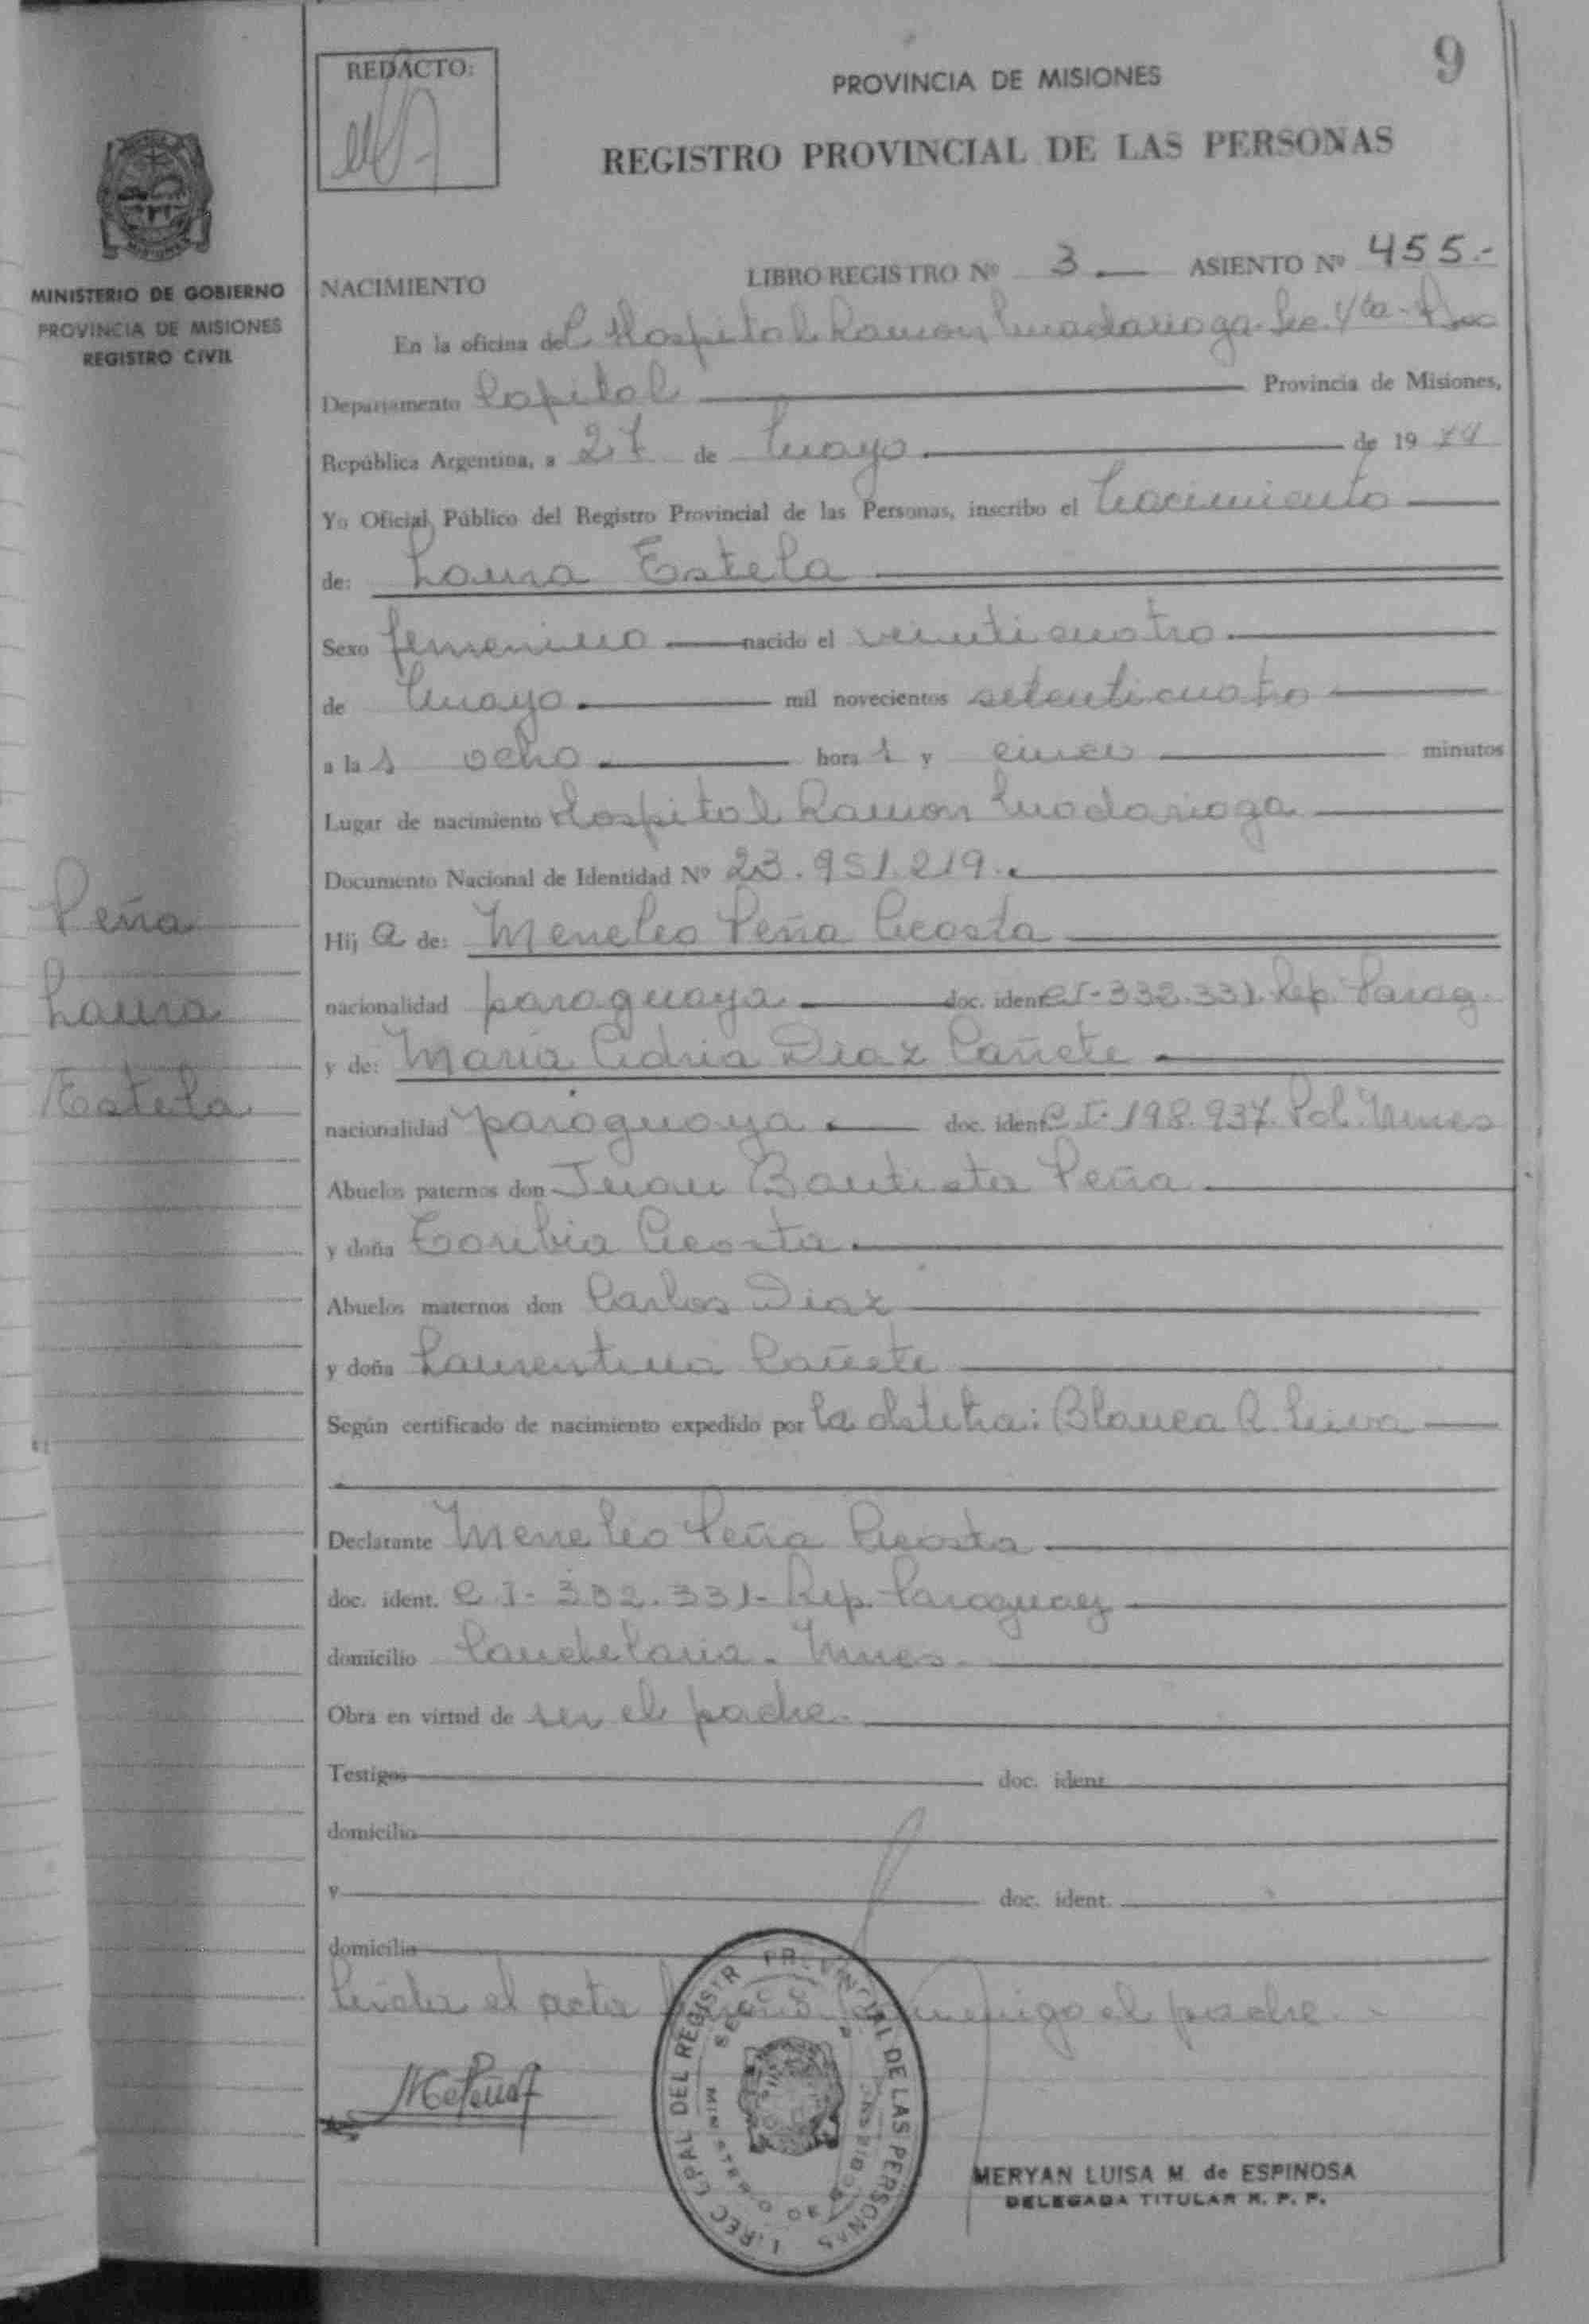 9
REDACTO:
PROVINCIA DE MISIONES
REGISTRO PROVINCIAL DE LAS PERSONAS
MINISTERIO DE GOBIERNO
PROVINCIA DE MISIONES
REGISTRO CIVIL
NACIMIENTO LIBRO REGISTRO Nº 3 ASIENTO Nº 455.-
En la oficina del Hospital Ramon Madariaga
Departamento Capital Provincia de Misiones,
República Argentina, a 27 de Mayo de 1974
Yo Oficial Público del Registro Provincial de las Personas, inscribo el Nacimiento
de: Laura Estela
Sexo femenino nacido el veinticuatro
de Mayo mil novecientos setenticuatro
a las ocho horas y cinco minutos
Lugar de nacimiento Hospital Ramon Madariaga
Documento Nacional de Identidad Nº 23.951.219.
Peña
Laura
Estela
Hija de: Meneleo Peña Acosta
nacionalidad paraguaya doc. ident. CI-332.331 Rep. Parag.
y de: Maria Adria Diaz Cañete
nacionalidad paraguaya doc. ident. C I-198.937. Pol. Mnes
Abuelos paternos don Juan Bautista Peña
y doña Toribia Acosta
Abuelos maternos don Carlos Diaz
y doña Laurentina Cañete
Según certificado de nacimiento expedido por la obstetra: Blanca R. Leiva
Declarante Meneleo Peña Acosta
doc. ident. C I- 332.331- Rep. Paraguay
domicilio Candelaria. Mnes.
Obra en virtud de ser el padre.
Testigos doc. ident.
domicilio
y doc. ident.
domicilio
Leida el acta conmigo el padre.
DEL REGISTRO PROVINCIAL DE LAS PERSONAS
MINISTERIO DE GOBIERNO
MERYAN LUISA M. de ESPINOSA
DELEGADA TITULAR R. P. P.